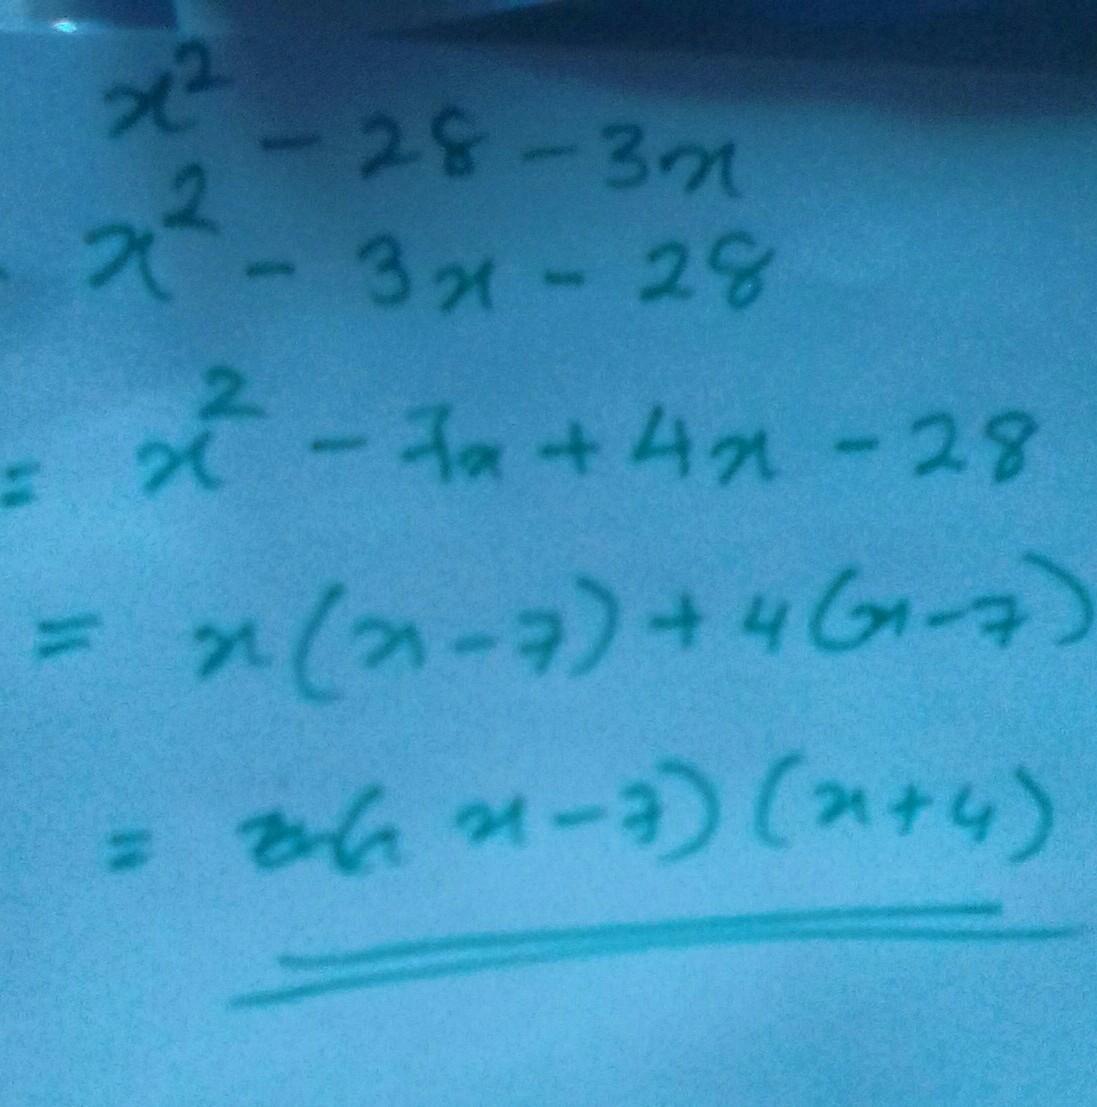 x² - 28 - 3x
- x² - 3x - 28
= x² - 7x + 4x - 28
= x(x-7) + 4(x-7)
= (x-7)(x+4)